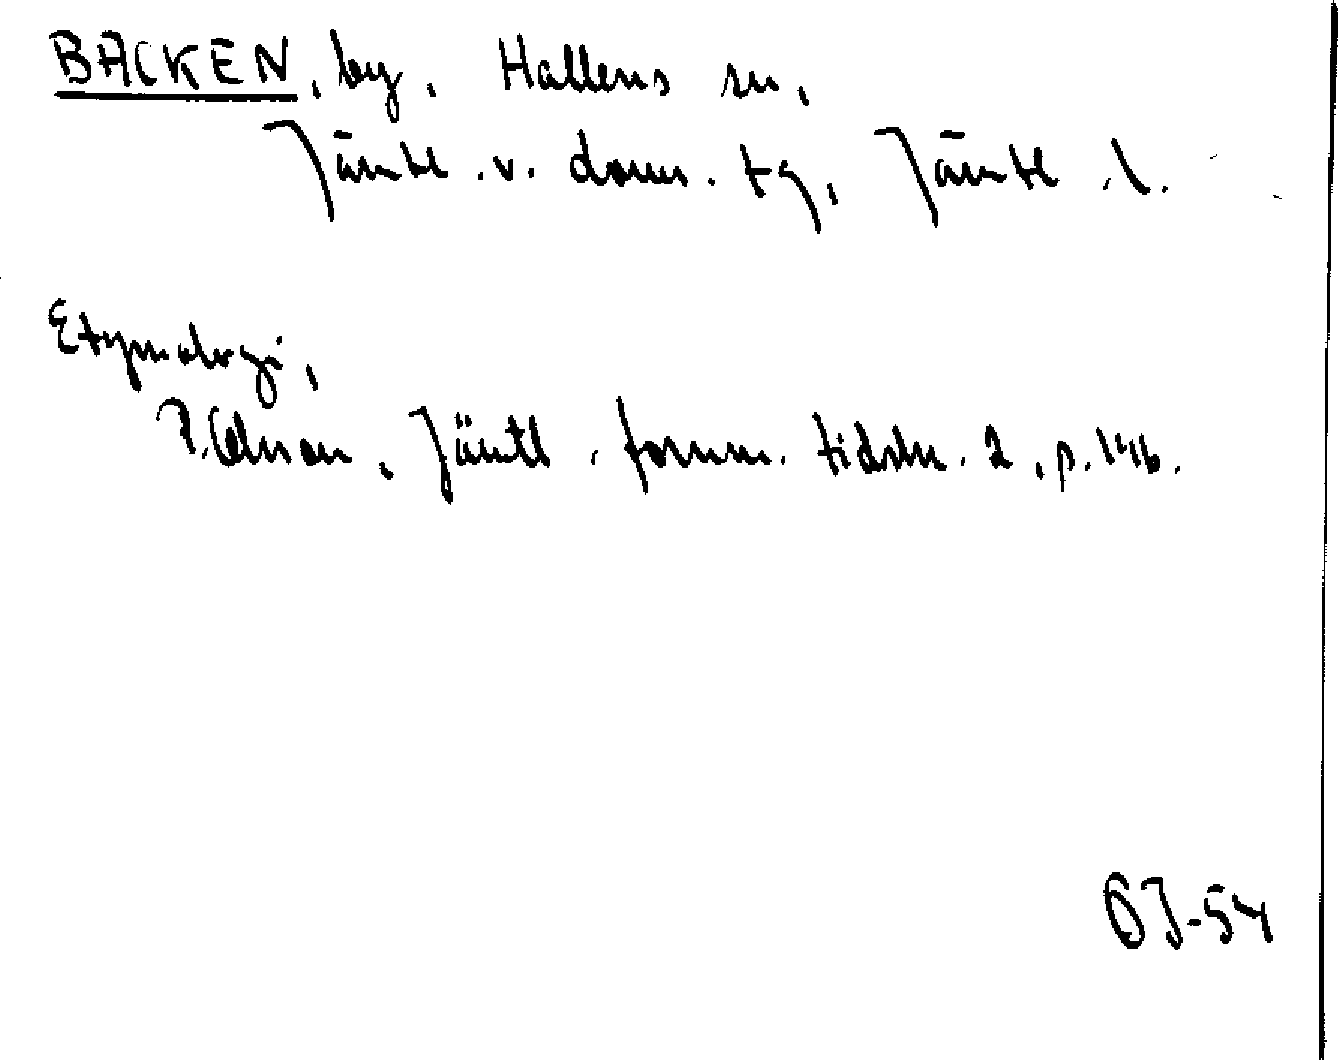 BACKEN, by, Hallens sn,
Jämtl. v. doms. tg, Jämtl. l.
Etymologi,
P. Olsson, Jämtl. fornm. tidskr. 2, p. 146.
ÖJ-54